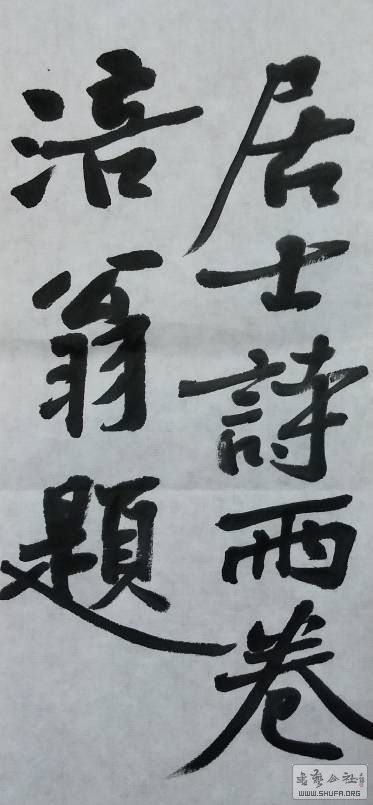 居士詩兩卷
涪翁題
書藝公社
WWW.SHUFA.ORG